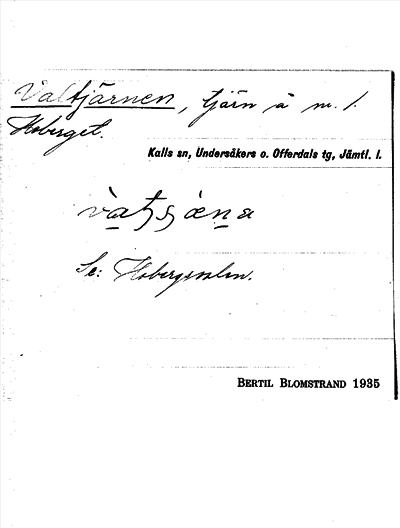 Valtjärnen, tjärn å nr. 1.
Hoberget.
Kalls sn, Undersåkers o. Offerdals tg, Jämtl. l.
Se: Hobergsvalen.
BERTIL BLOMSTRAND 1935